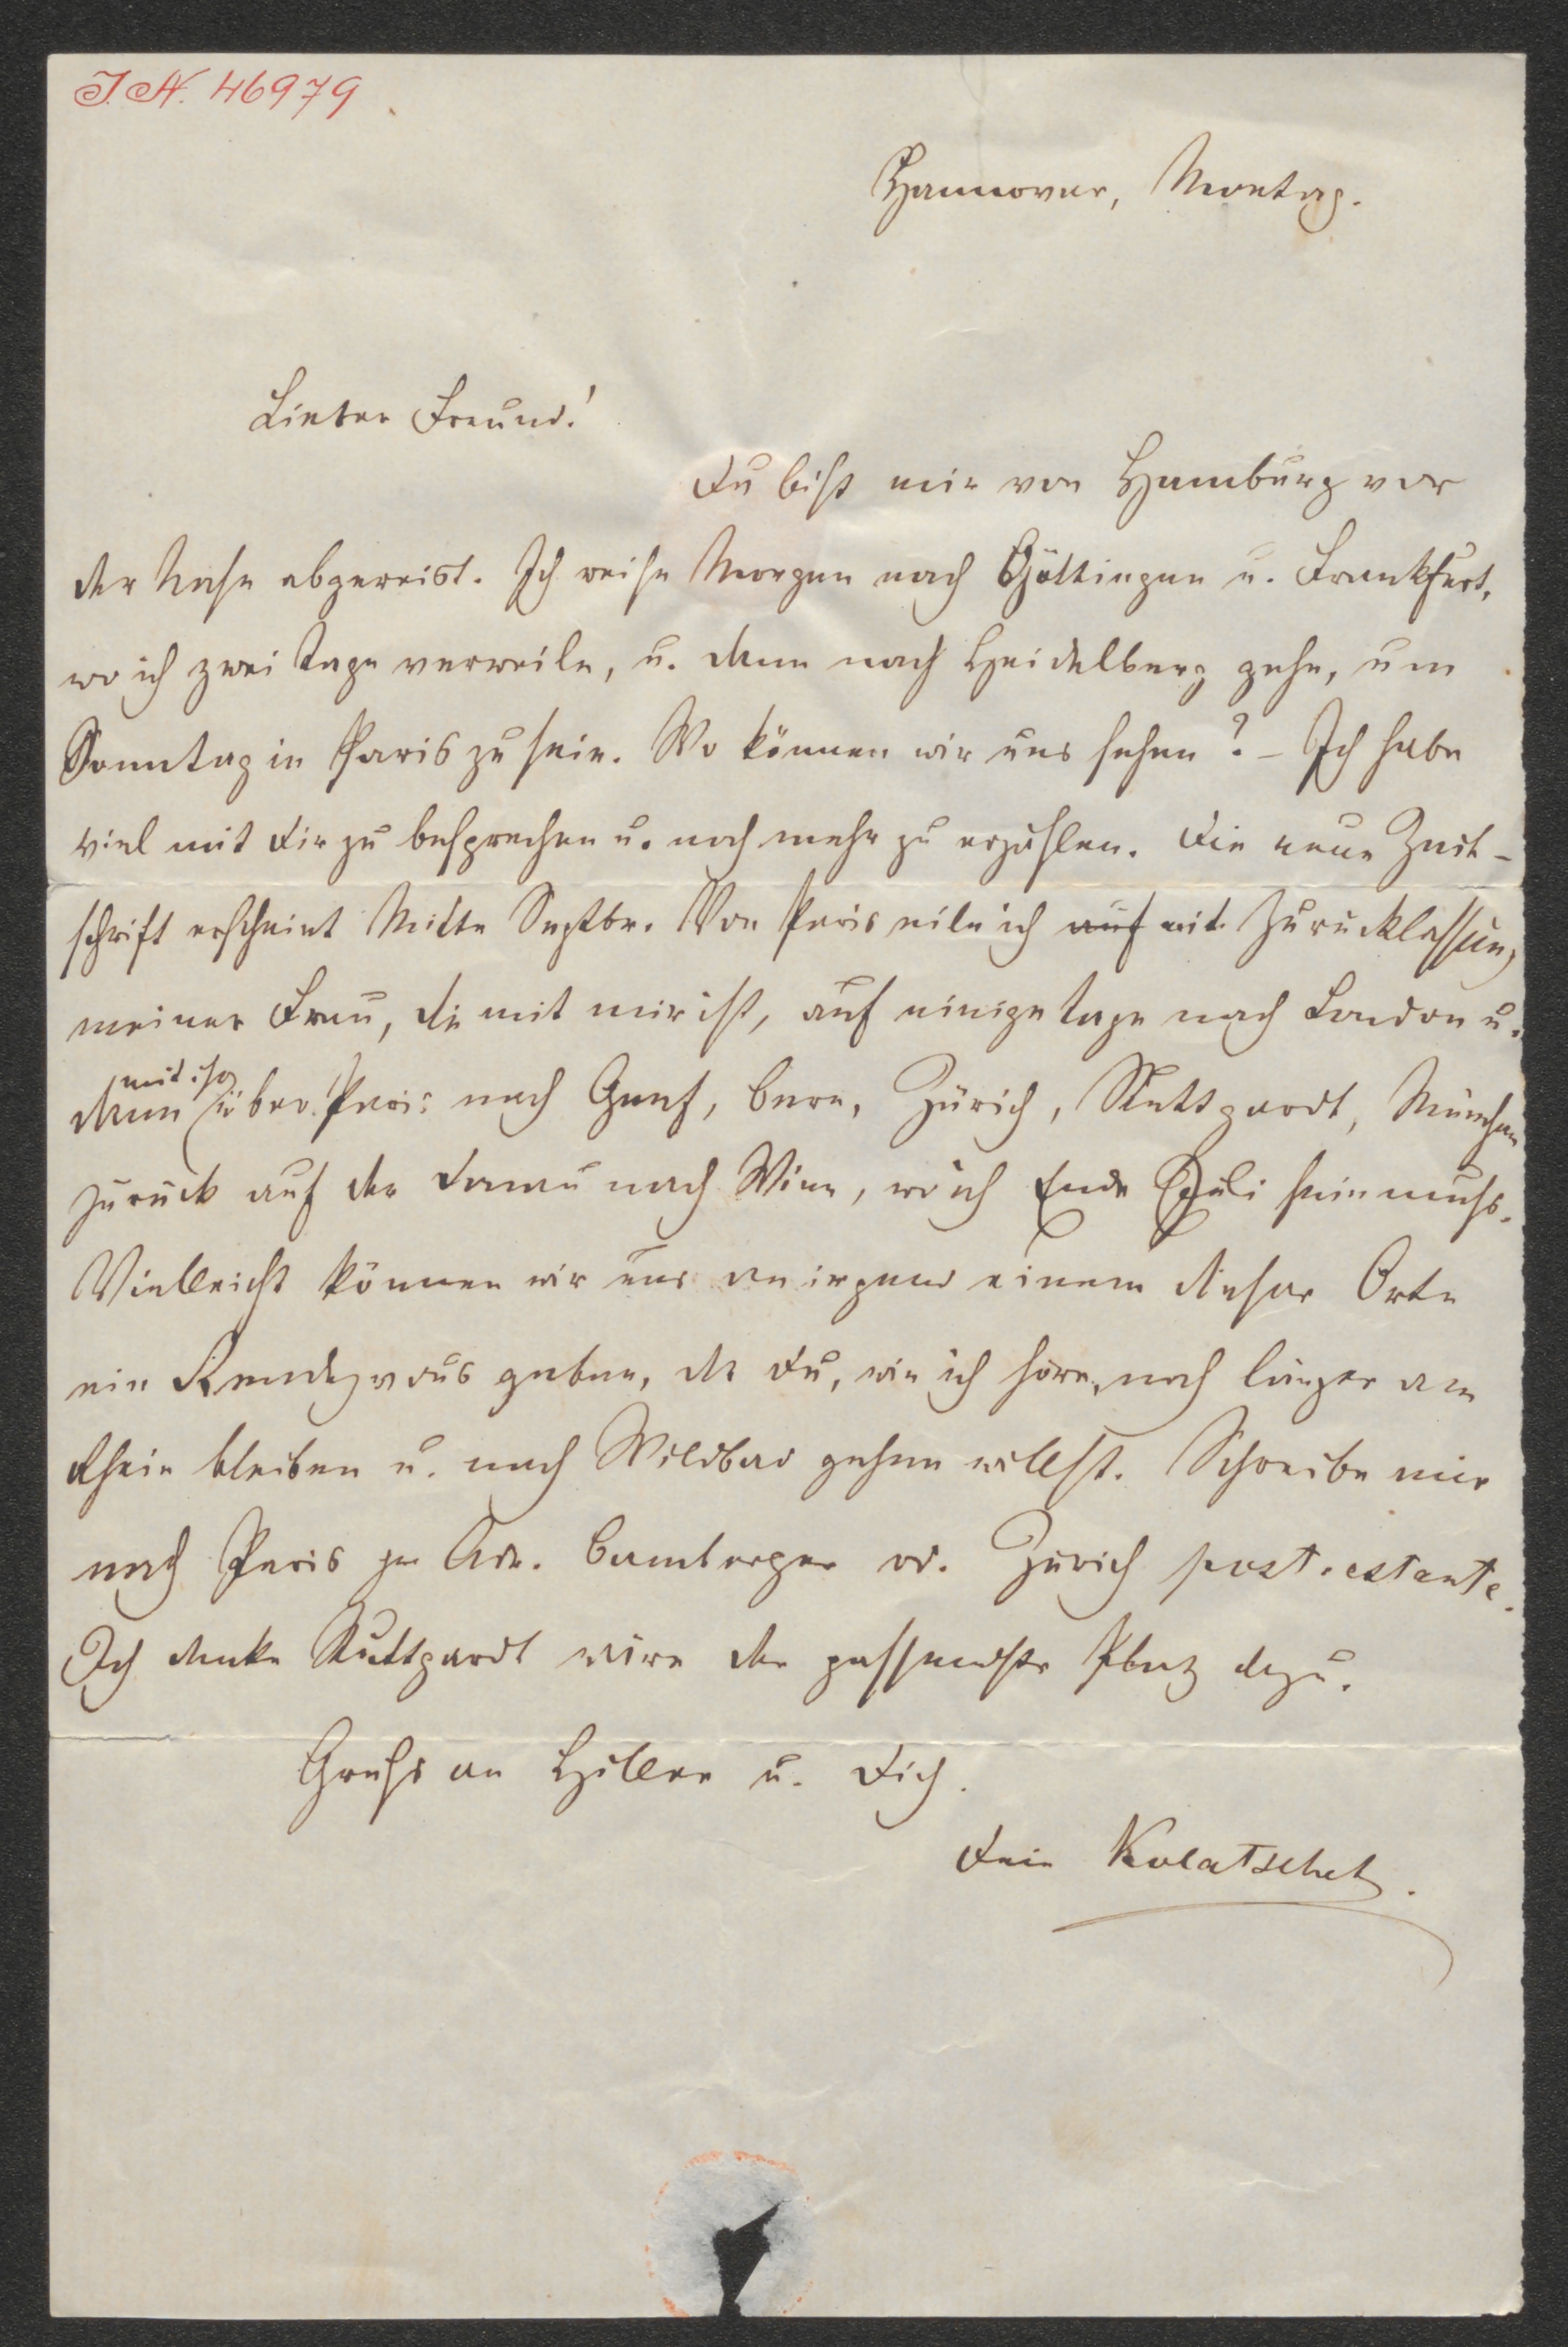 J.N. 46979
Hannover, Montag.
Lieber Freund!
Du bist mir von Hamburg vor
der Nase abgereist. Ich reise Morgen nach Göttingen u. Frankfurt,
wo ich zwei Tage verweile, u. dann nach Heidelberg gehe, um
Sonntag in Paris zu sein. Wo können wir uns sehen? – Ich habe
viel mit Dir zu besprechen u. noch mehr zu erzählen. Die neue Zeit-
schrift erscheint Mitte Septbr. Von Paris eile ich auf mit Zurücklassung
meiner Frau, die mit mir ist, auf einige Tage nach London u.
mit ihr
dann über Paris nach Genf, Bern, Zürich, Stuttgardt, München
zurück auf der Donau nach Wien, wo ich Ende Juli sein muss.
Vielleicht können wir uns an irgend einem dieser Orte
ein Rendezvous geben, da Du, wie ich höre, noch länger am
Rhein bleiben u. nach Wildbad gehen willst. Schreibe mir
nach Paris per Adr. Bamberger od. Zürich post restante.
Ich denke Stuttgardt wäre der passendste Platz dazu.
Gruss an Hiller u. Dich.
Dein Kolatschek.